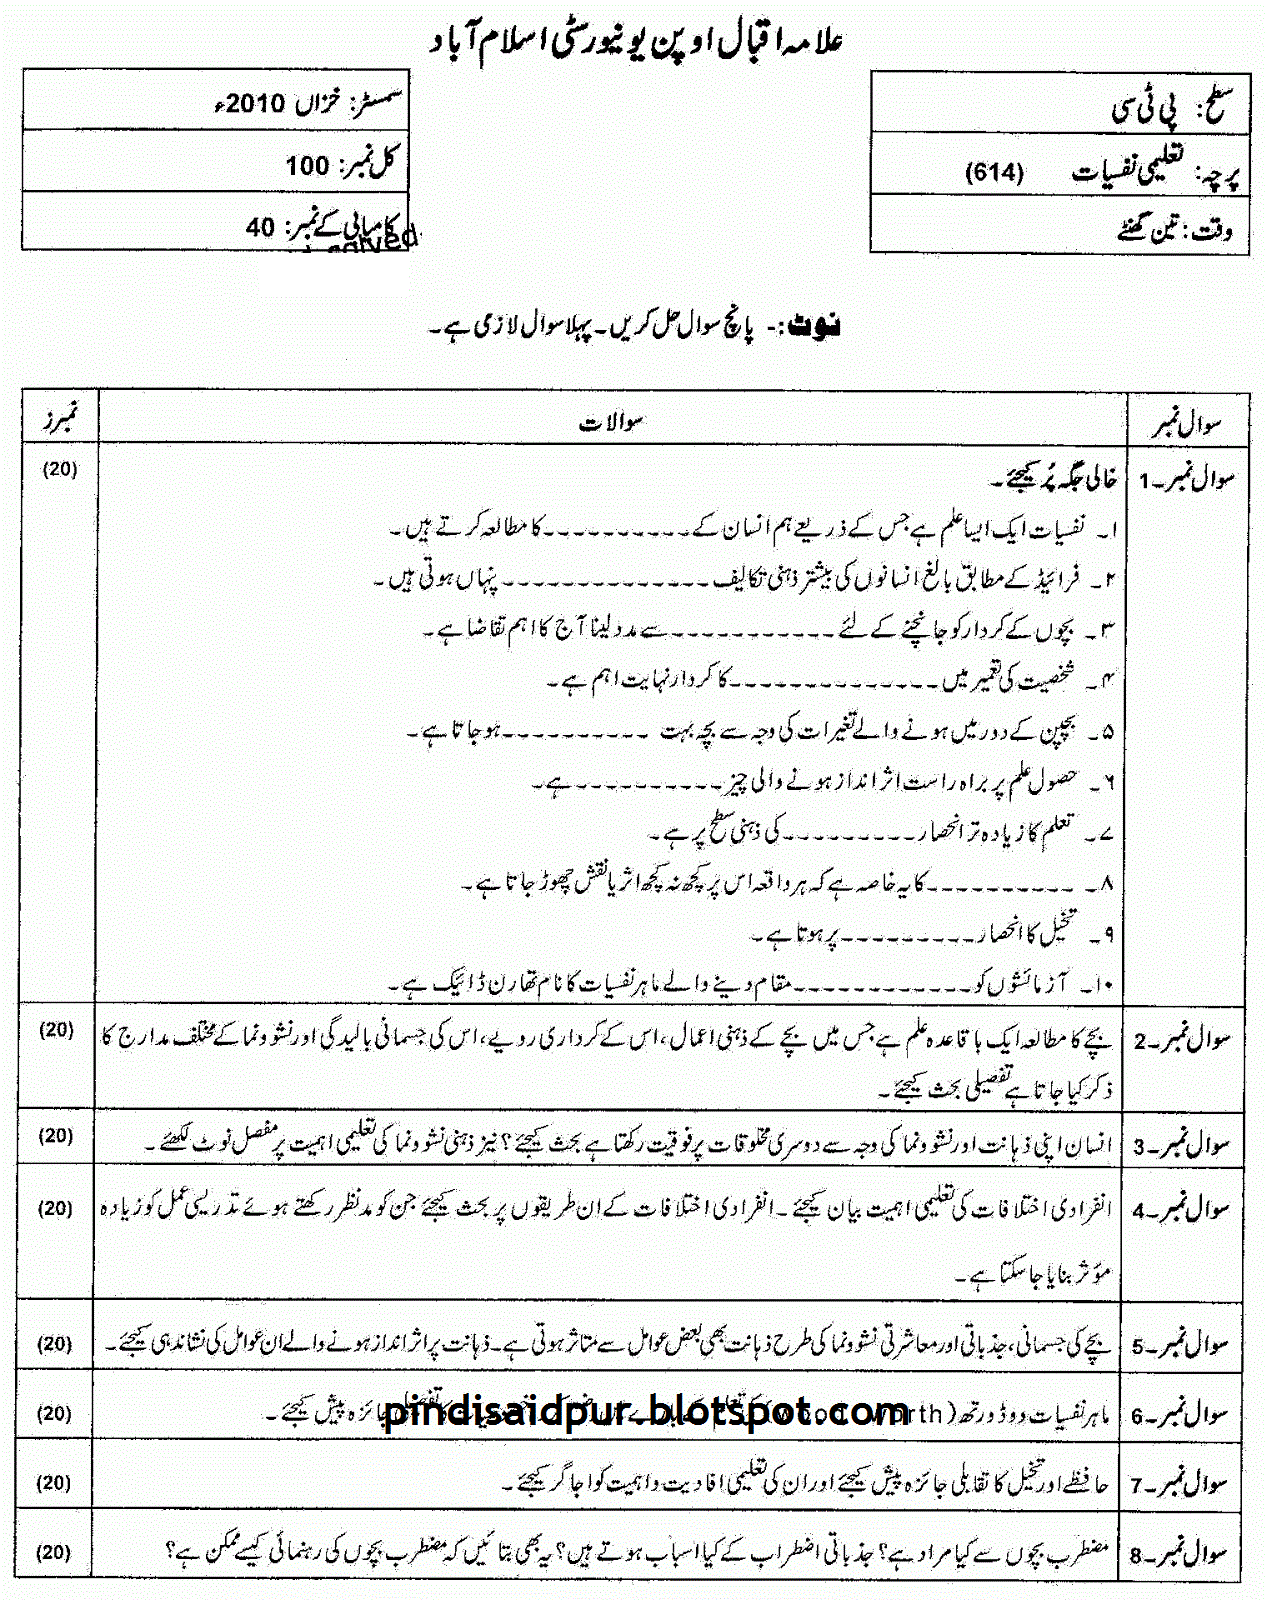 علامہ اقبال اوپن یونیورسٹی اسلام آباد
سطح: پی ٹی سی
سمسٹر: خزاں 2010ء
پرچہ: تعلیمی نفسیات (614)
کل نمبر: 100
وقت: تین گھنٹے
کامیابی کے نمبر: 40
نوٹ:- پانچ سوال حل کریں۔ پہلا سوال لازمی ہے۔
سوال نمبر سوالات نمبرز
سوال نمبر۔1 خالی جگہ پُر کیجئے۔ (20)
۱۔ نفسیات ایک ایسا علم ہے جس کے ذریعے ہم انسان کے----------کا مطالعہ کرتے ہیں۔
۲۔ فرائیڈ کے مطابق بالغ انسانوں کی بیشتر ذہنی تکالیف-------------- پنہاں ہوتی ہیں۔
۳۔ بچوں کے کردار کو جانچنے کے لئے -----------سے مدد لینا آج کا اہم تقاضا ہے۔
۴۔ شخصیت کی تعمیر میں--------------کا کردار نہایت اہم ہے۔
۵۔ بچپن کے دور میں ہونے والے تغیرات کی وجہ سے بچہ بہت ----------ہو جاتا ہے۔
۶۔ حصول علم پر براہ راست اثر انداز ہونے والی چیز----------ہے۔
۷۔ تعلم کا زیادہ تر انحصار---------کی ذہنی سطح پر ہے۔
۸۔ ----------کا یہ خاصہ ہے کہ ہر واقعہ اس پر کچھ نہ کچھ اثر یا نقش چھوڑ جاتا ہے۔
۹۔ تخیل کا انحصار---------پر ہوتا ہے۔
۱۰۔ آزمائشوں کو------------مقام دینے والے ماہر نفسیات کا نام تھارن ڈائیک ہے۔
سوال نمبر۔2 بچے کا مطالعہ ایک باقاعدہ علم ہے جس میں بچے کے ذہنی اعمال، اس کے کرداری رویے، اس کی جسمانی بالیدگی اور نشوونما کے مختلف مدارج کا (20)
ذکر کیا جاتا ہے تفصیلی بحث کیجئے۔
سوال نمبر۔3 انسان اپنی ذہانت اور نشوونما کی وجہ سے دوسری مخلوقات پر فوقیت رکھتا ہے بحث کیجئے؟ نیز ذہنی نشوونما کی تعلیمی اہمیت پر مفصل نوٹ لکھئے۔ (20)
سوال نمبر۔4 انفرادی اختلافات کی تعلیمی اہمیت بیان کیجئے۔ انفرادی اختلافات کے ان طریقوں پر بحث کیجئے جن کو مدنظر رکھتے ہوئے تدریسی عمل کو زیادہ (20)
مؤثر بنایا جا سکتا ہے۔
سوال نمبر۔5 بچے کی جسمانی، جذباتی اور معاشرتی نشوونما کی طرح ذہانت بھی بعض عوامل سے متاثر ہوتی ہے۔ ذہانت پر اثر انداز ہونے والے ان عوامل کی نشاندہی کیجئے۔ (20)
سوال نمبر۔6 ماہر نفسیات ووڈورتھ جائزہ پیش کیجئے۔ (20)
pindisaidpur.blotspot.com
سوال نمبر۔7 حافظے اور تخیل کا تقابلی جائزہ پیش کیجئے اور ان کی تعلیمی افادیت و اہمیت کو اجاگر کیجئے۔ (20)
سوال نمبر۔8 مضطرب بچوں سے کیا مراد ہے؟ جذباتی اضطراب کے کیا اسباب ہوتے ہیں؟ یہ بھی بتائیں کہ مضطرب بچوں کی رہنمائی کیسے ممکن ہے؟ (20)